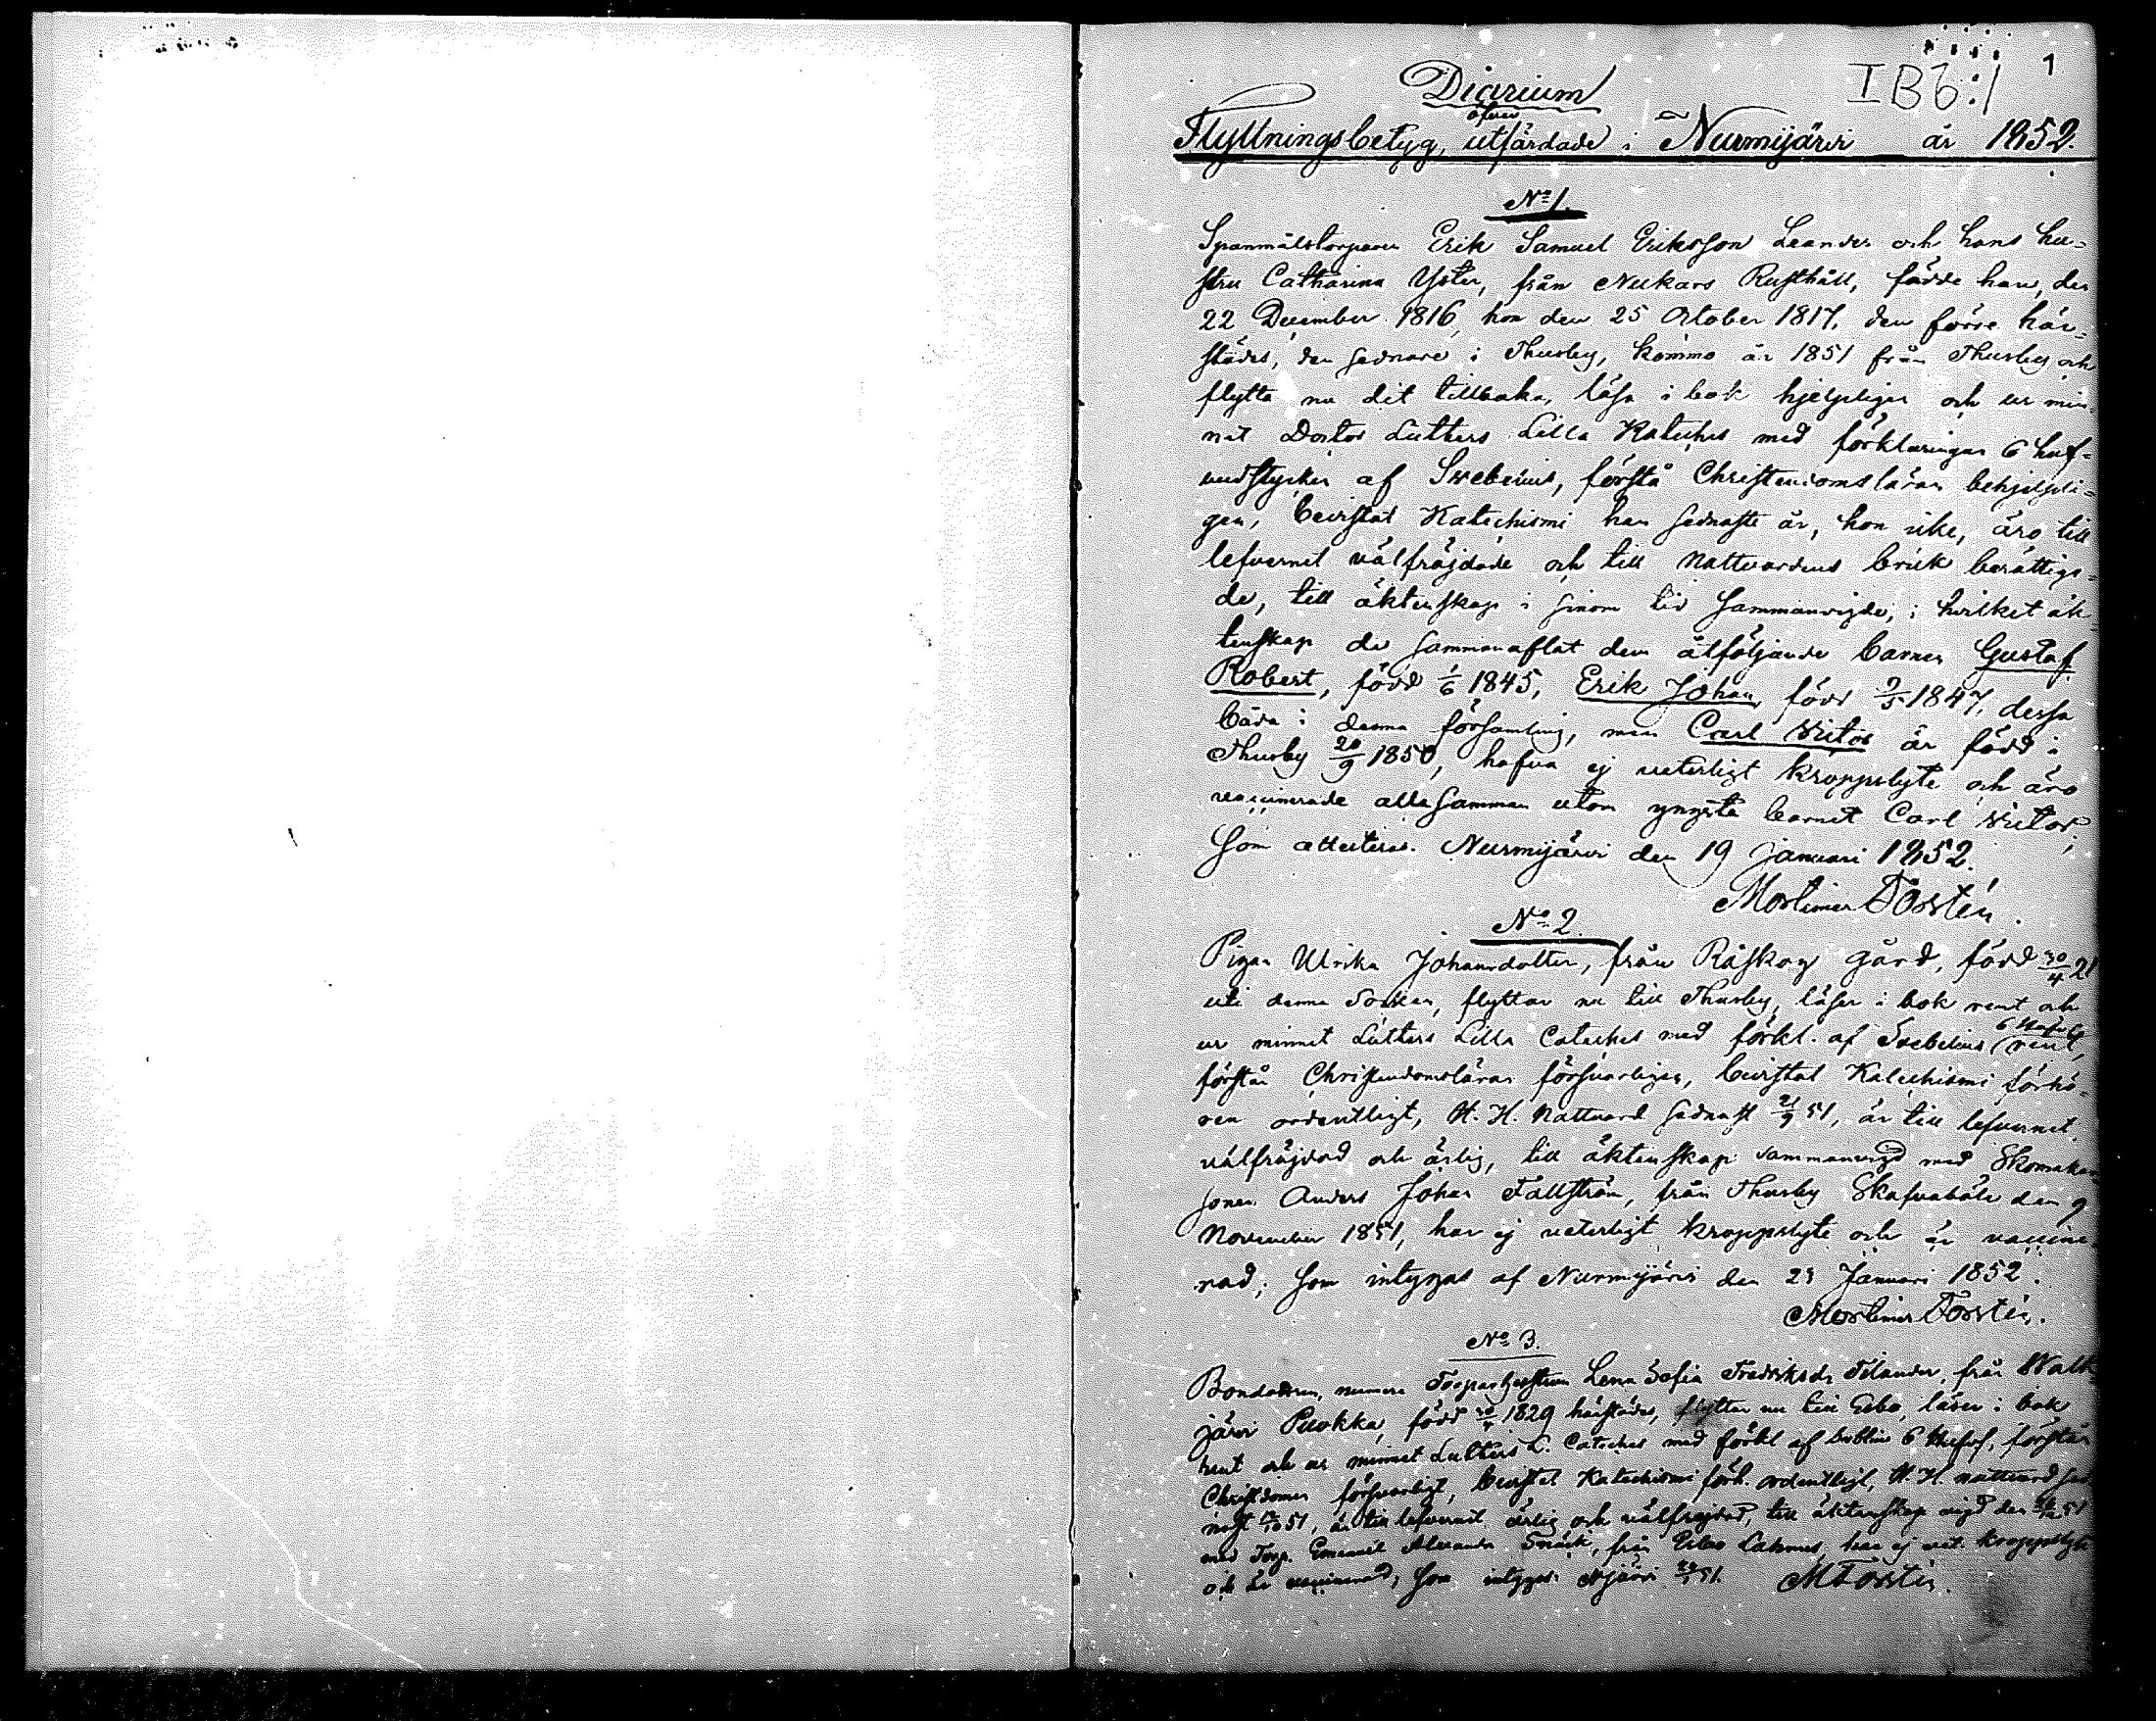 1
I B b:1
Diarium
öfver
Flyttningsbetyg, utfärdade i Nurmijärvi år 1852.
No 1.
Spanmålstorparen Erik Samuel Eriksson Leander och hans hu-
stru Catharina Yster, från Nukars Rusthåll, födde han, den
22 December 1816, hon den 25 October 1817, den förre här-
städes, den sednare i Thusby, kommo år 1851 från Thusby och
flytta nu dit tillbaka, läsa i bok hjelpligen och ur min-
net Doctor Luthers Lilla Kateches med förklaringar 6 huf-
vudstycken af Svebelius, förstå Christendomsläran behjelpli-
gen, bevistat Katechismi han sednaste år, hon icke, äro till
lefvernet välfräjdade och till Nattvardens bruk berättiga-
de, till äktenskap i sinom tid sammanvigde, i hvilket äk-
tenskap de sammanaflat dem åtföljande barnen Gustaf
Robert, född 1/6 1845, Erik Johan, född 9/5 1847, dessa
båda i denna församling, men Carl Victor är född i
Thusby 20/9 1850, hafva ej veterligt kroppslyte och äro
vaccinerade allesamman utom yngsta barnet Carl Victor;
Som attesteras. Nurmijärvi den 19 Januari 1852.
Mortimer Forstén.
No 2.
Pigan Ulrika Johansdotter, från Råskog gård, född 30/4 21
uti denna Socken, flyttar nu till Thusby, läser i bok rent och
ur minnet Luthers Lilla Cateches med förkl. af Svebelius 6 Hufvst. rent,
förstår Christendomsläran försvarligen, bevistat Katechismi förhö-
ren ordentligt, H. H. Nattvard sednast 21/9 51, är till lefvernet
välfräjdad och ärlig, till äktenskap sammanvigd med Skomakare
sonen Anders Johan Fallström, från Thusby Skafvaböle den 9
November 1851, har ej veterligt kroppslyte och är vaccine-
rad; Som intygas af Nurmijärvi den 23 Januari 1852.
Mortimer Forstén.
No 3.
numera Torparhustrun Lena Sofia Fredriksdr från Valk-
järvi Puokka, född 1829 härstädes, flyttar nu till Esbo, läser i bok
rent och ur minnet Luthers L. Cateches med förkl af 6 Hufvst, förstår
Christdomen försvarligt, bevistat Katechismi förh. ordentligt, H. H. nattvard sed-
nast 51, är till lefvernet ärlig och välfräjdad, till äktenskap vigd den 51
med Torp. Emanuel Alexander från Esbo har ej vet. kroppslyte
och är vaccinerad; Som intygas Njärvi 51. M Forstén.